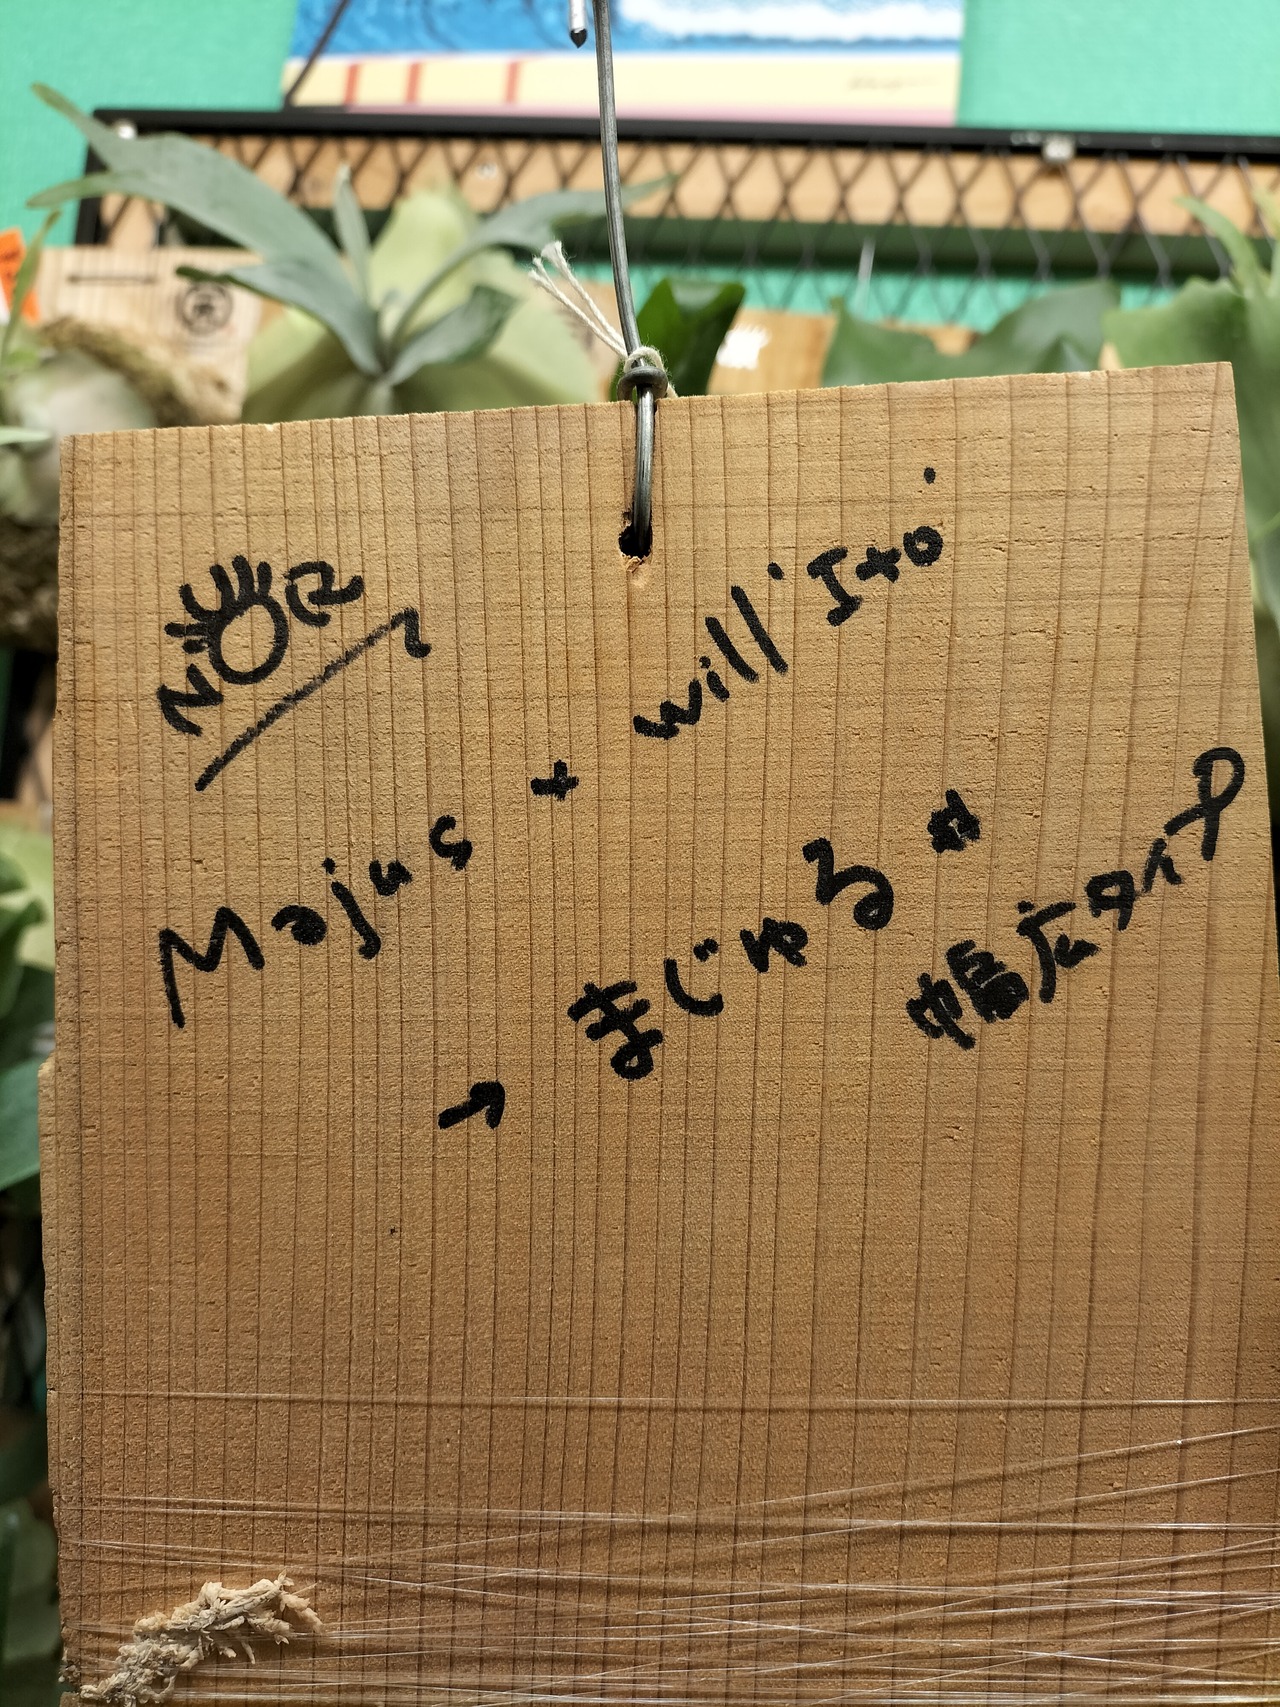 NOR
Majus + will' Ito.
→ まじゅる☆
幅広タイプ